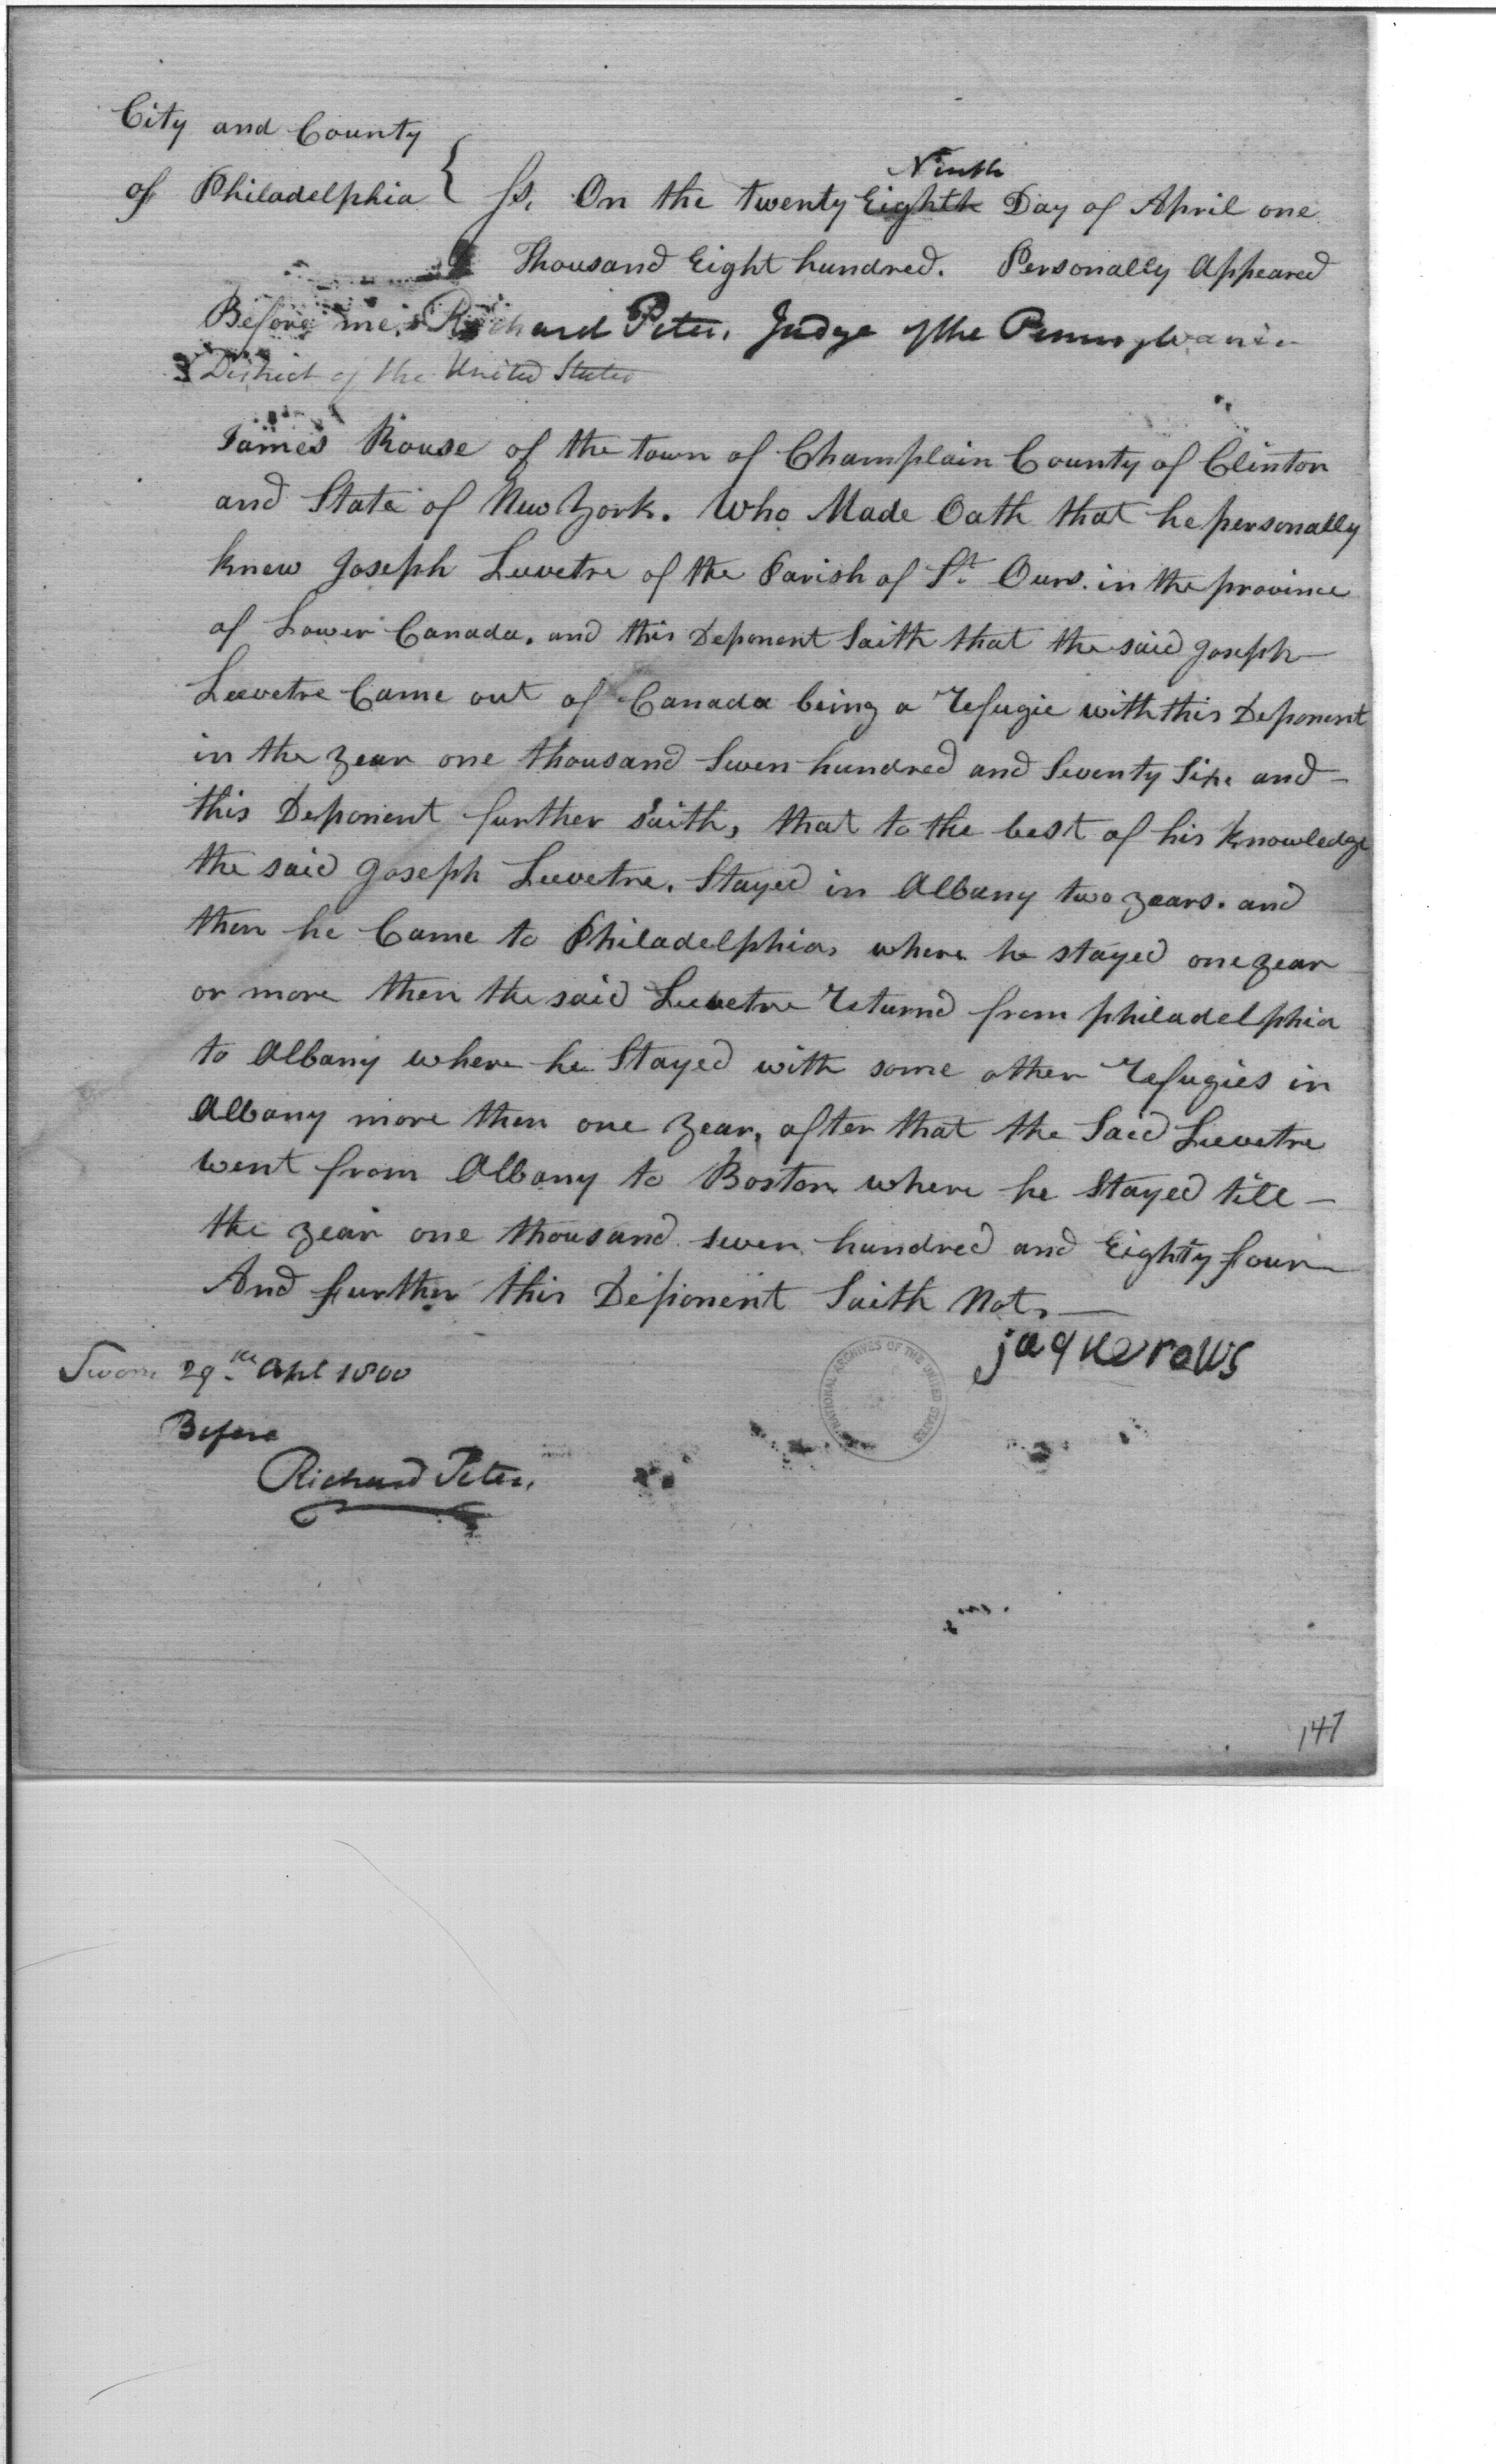 City and County
of Philadelphia { ss. On the twenty Eighth Ninth Day of April one
Thousand Eight hundred. Personally Appeared
Before me, Richard Peters, Judge of the Pennsylvania
District of the United States
James Rouse of the town of Champlain County of Clinton
and State of New York. Who Made Oath that he personally
knew Joseph Leevetre of the Parish of St Ours. in the province
of Lower Canada, and this Deponent Saith that the said Joseph
Leevetre Came out of Canada being a refugie with this Deponent
in the year one thousand Seven hundred and Seventy Six. and
this Deponent further saith, that to the best of his knowledge
the said Joseph Leevetre. Stayed in Albany two years. and
then he Came to Philadelphia, where he stayed one year
or more then the said Leevetre returnd from philadelphia
to Albany where he Stayed with some other refugies in
Albany more then one year, after that the Said Leevetre
went from Albany to Boston where he Stayed till —
the year one thousand seven hundred and Eighty four
And further this Deponent Saith Not. —
jaque rows
Sworn 29th Apl 1800
Before
Richard Peters.
NATIONAL ARCHIVES OF THE UNITED STATES
147